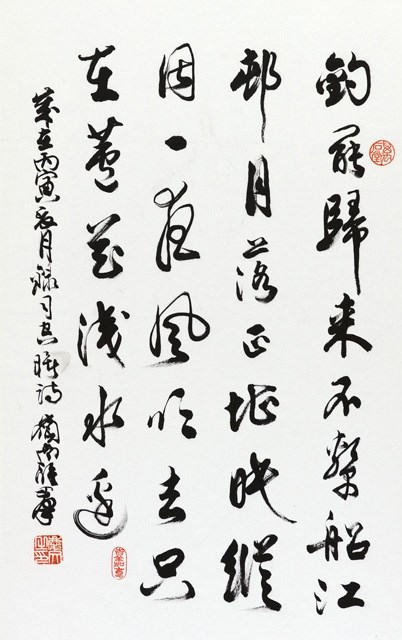 釣罷歸来不繫船江
邨月落正堪眠縱
然一夜風吹去只
在蘆花淺水邊
歲在丙寅月錄司空曙詩嶺南